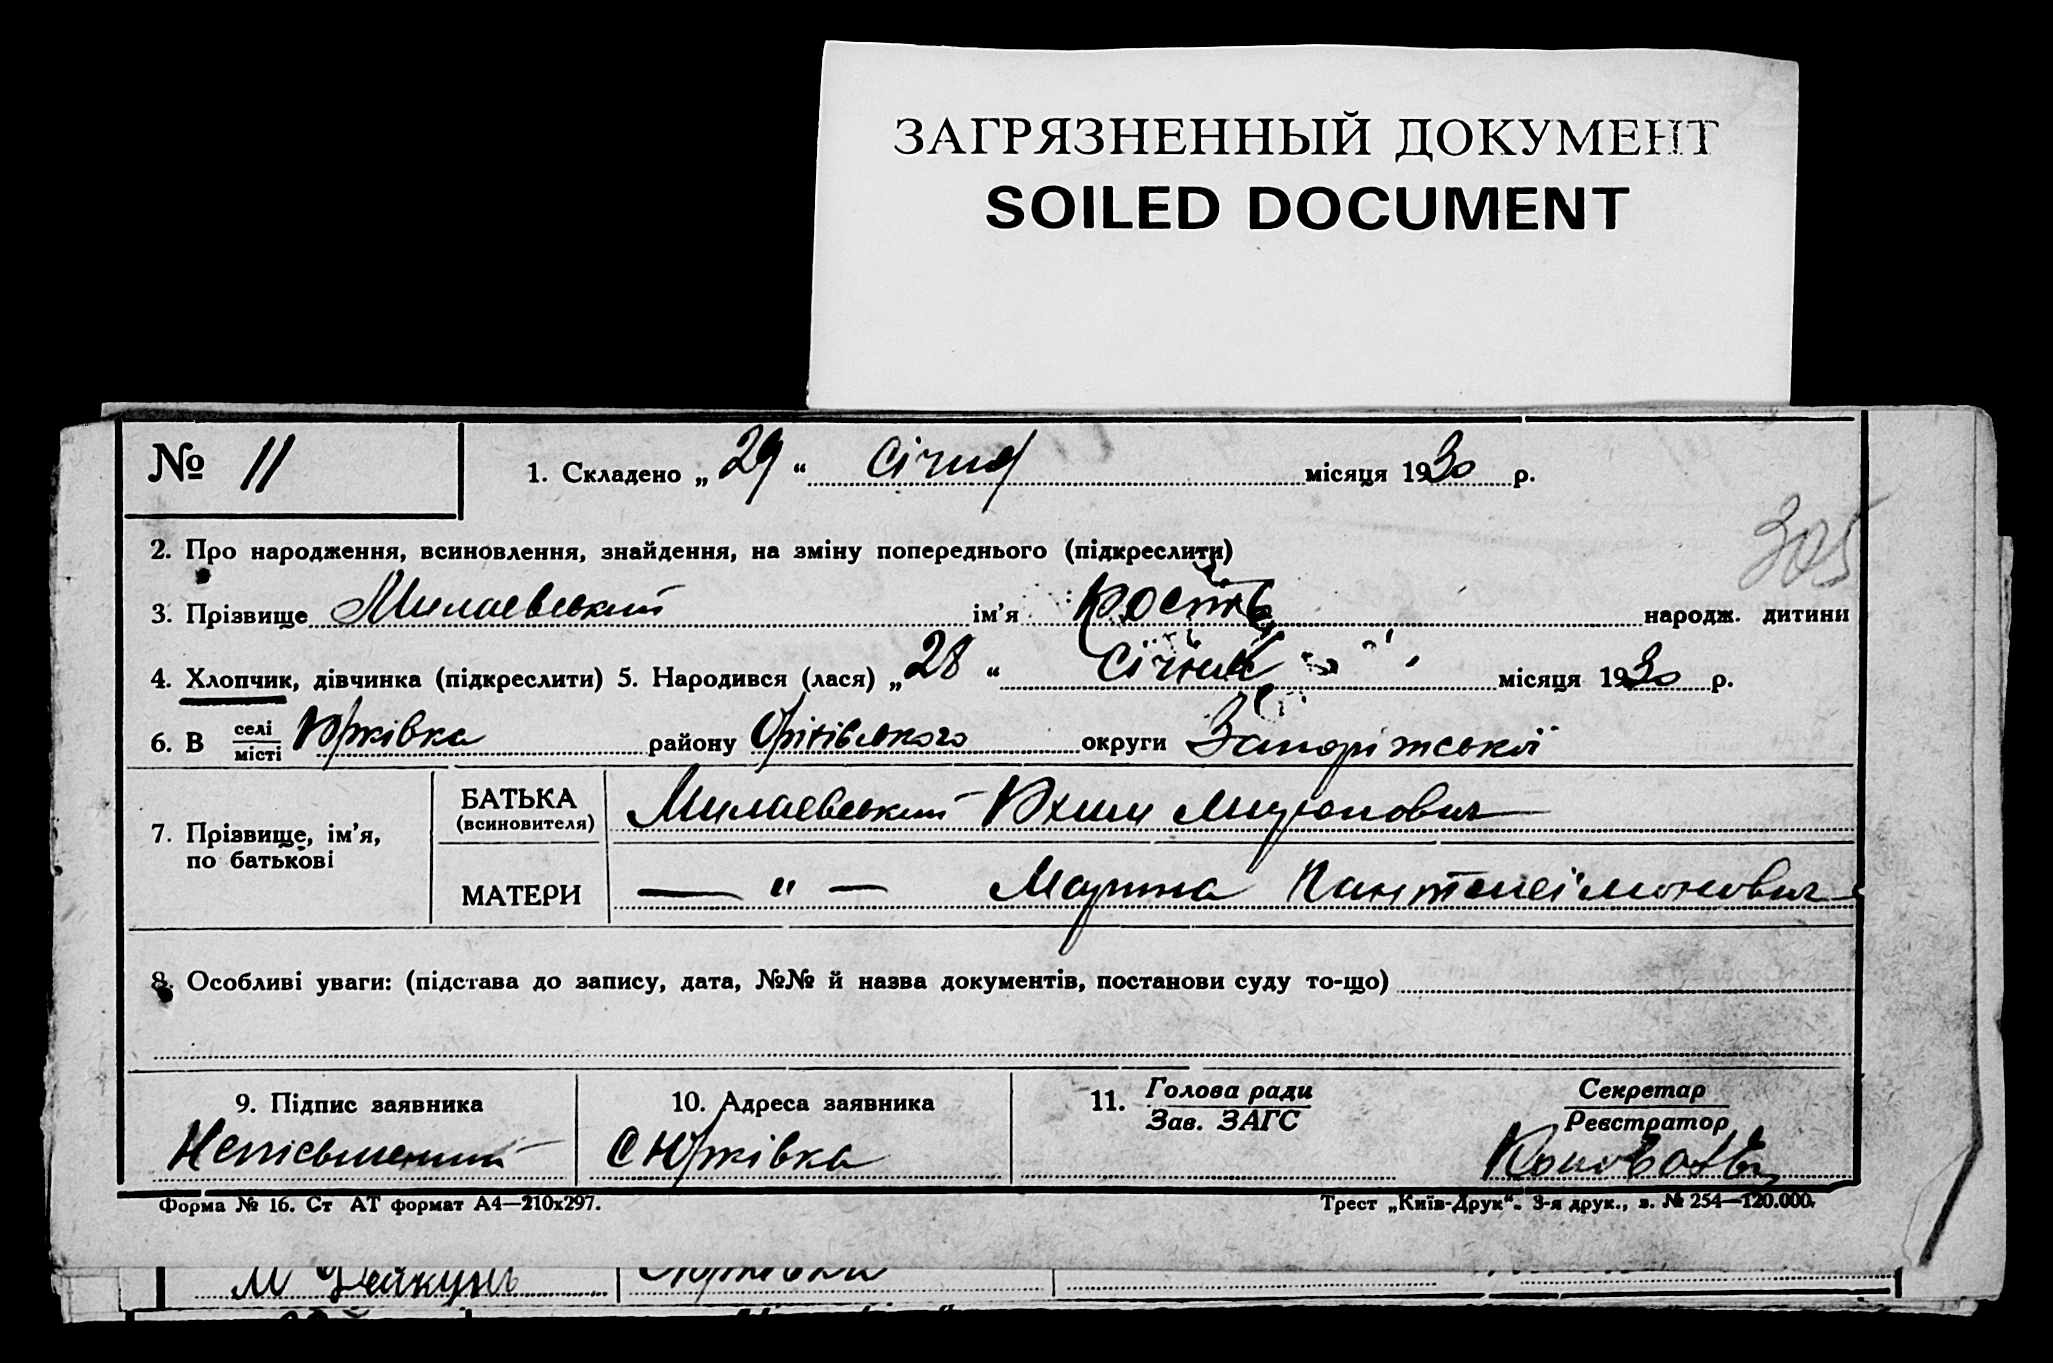 ЗАГРЯЗНЕННЫЙ ДОКУМЕНТ
SOILED DOCUMENT
№ 11
1. Складено „ 29 “ січня місяця 1930 р.
305
2. Про народження, всиновлення, знайдення, на зміну попереднього (підкреслити)
3. Прізвище Милаевський ім’я Кость народж. дитини
4. Хлопчик, дівчинка (підкреслити) 5. Народився (лася) „ 28 “ січня місяця 1930 р.
6. В селі місті Юрківка району Оріхівського округи Запоріжської
7. Прізвище, ім’я, по батькові
БАТЬКА (всиновителя) Милаевський Юхим
МАТЕРИ — " — Марина Пантелеімонович
8. Особливі уваги: (підстава до запису, дата, №№ й назва документів, постанови суду то-що)
9. Підпис заявника
10. Адреса заявника
11. Голова ради Зав. ЗАГС
Секретар Реєстратор
Неписьменний
С Юрківка
Форма № 16. Ст АТ формат А4—210х297.
Трест „Київ-Друк“. 3-я друк., з. № 254—120.000.